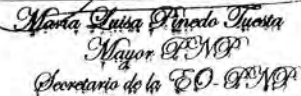 María Luisa Pinedo Tuesta
Mayor PNP
Secretario de la EO-PNP